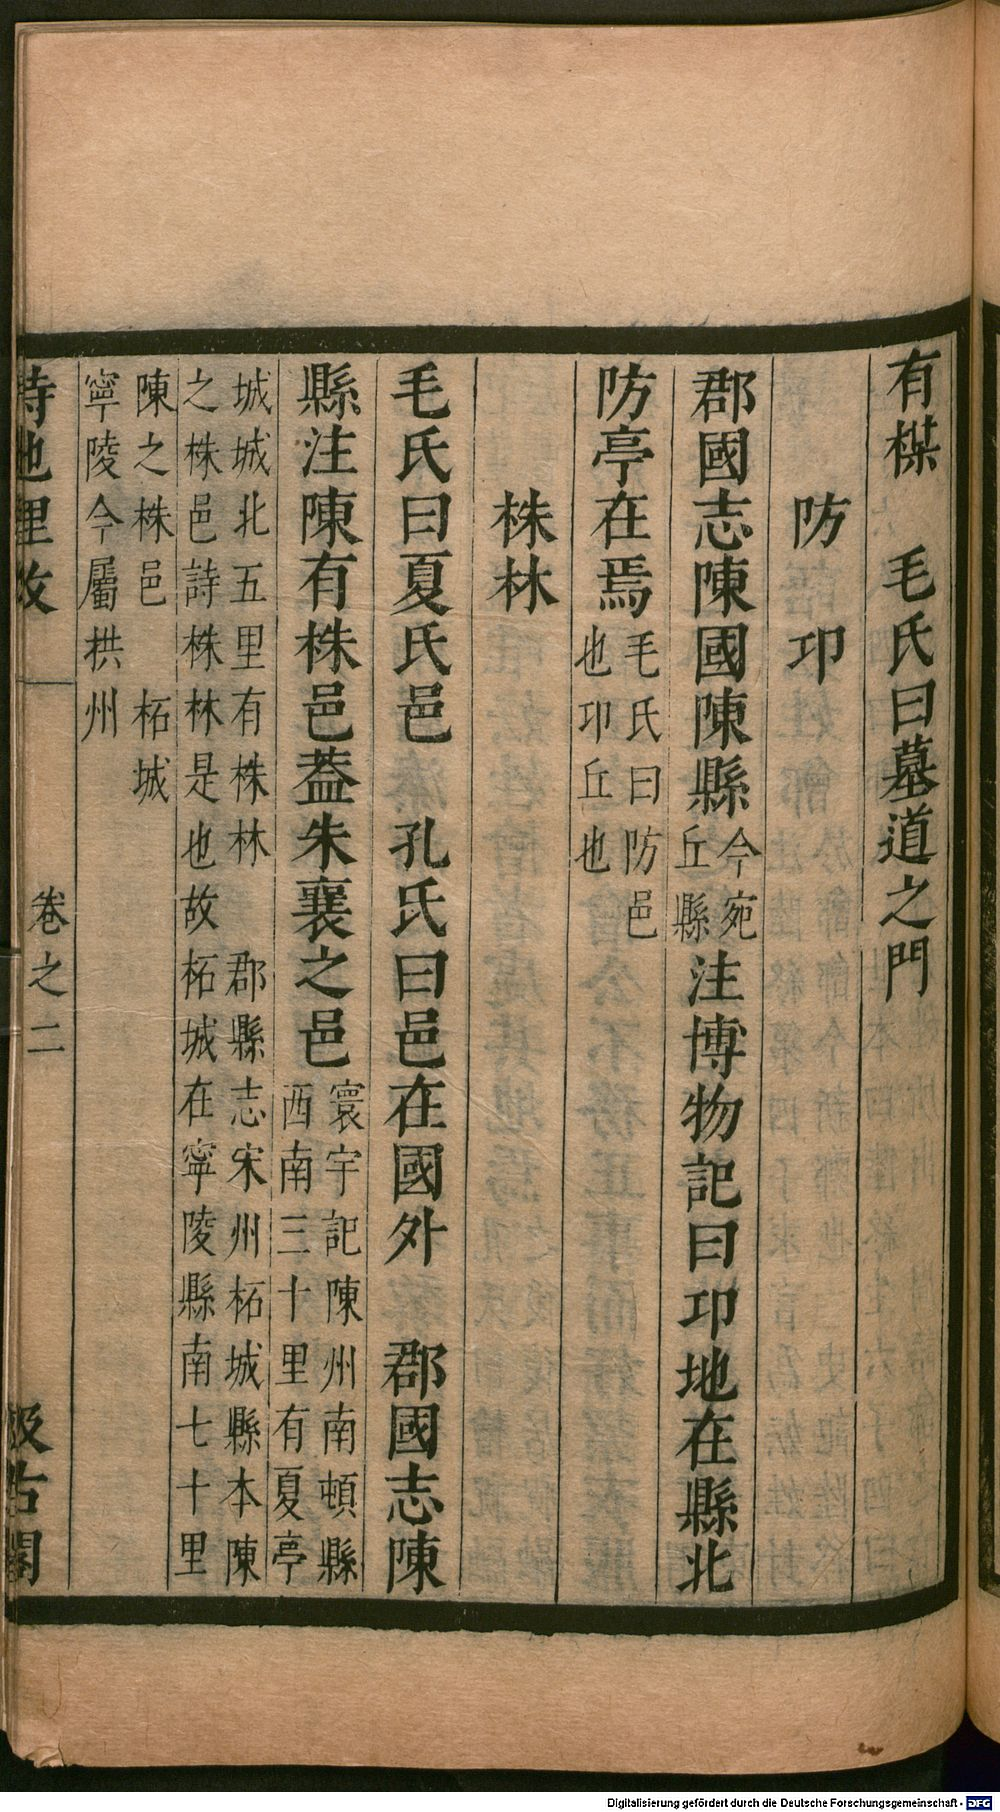 有楳　毛氏曰墓道之門
防　卭
郡國志陳國陳縣今宛丘縣注博物記曰卭地在縣北
防亭在焉毛氏曰防邑也卭丘也
株林
毛氏曰夏氏邑　孔氏曰邑在國外　郡國志陳
縣注陳有株邑葢朱襄之邑寰宇記陳州南頓縣西南三十里有夏亭
城城北五里有株林　郡縣志宋州柘城縣本陳
之株邑詩株林是也故柘城在寧陵縣南七十里
陳之株邑　柘城
寧陵今屬拱州
詩地理攷　卷之二　汲古閣
Digitalisierung gefördert durch die Deutsche Forschungsgemeinschaft - DFG